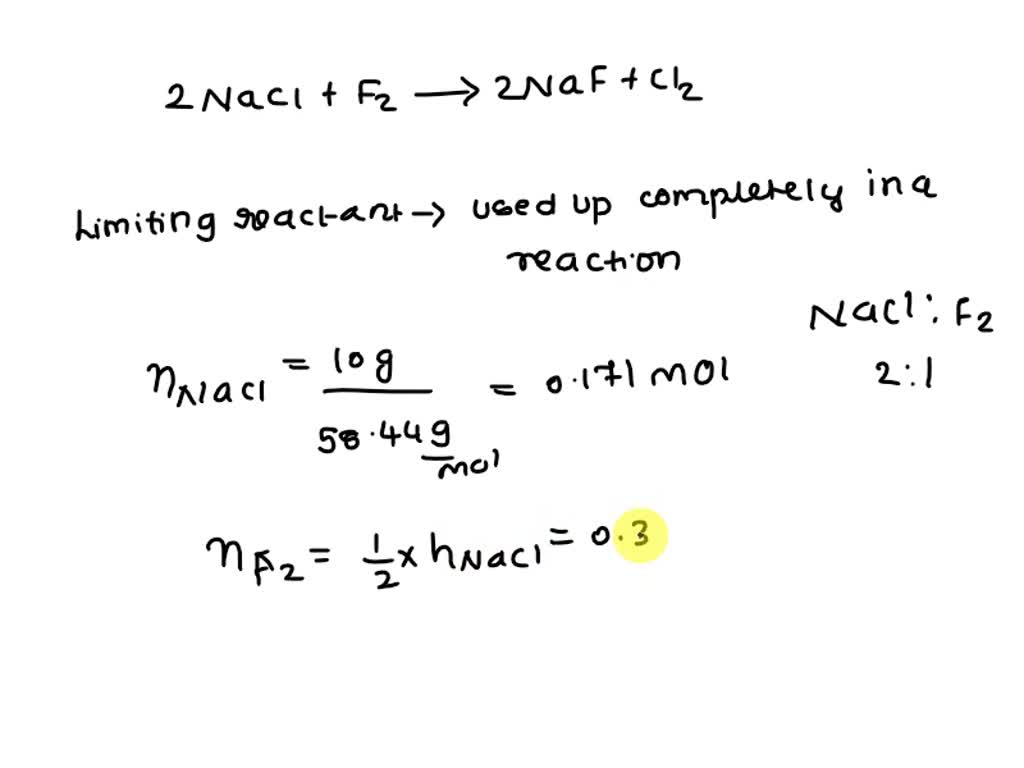 2NaCl + F2 → 2NaF + Cl2
Limiting reactant → used up completely in a
reaction
NaCl : F2
nNaCl = 10g / 58.44 g/mol = 0.171 mol
2:1
nF2 = 1/2 × nNaCl = 0.3